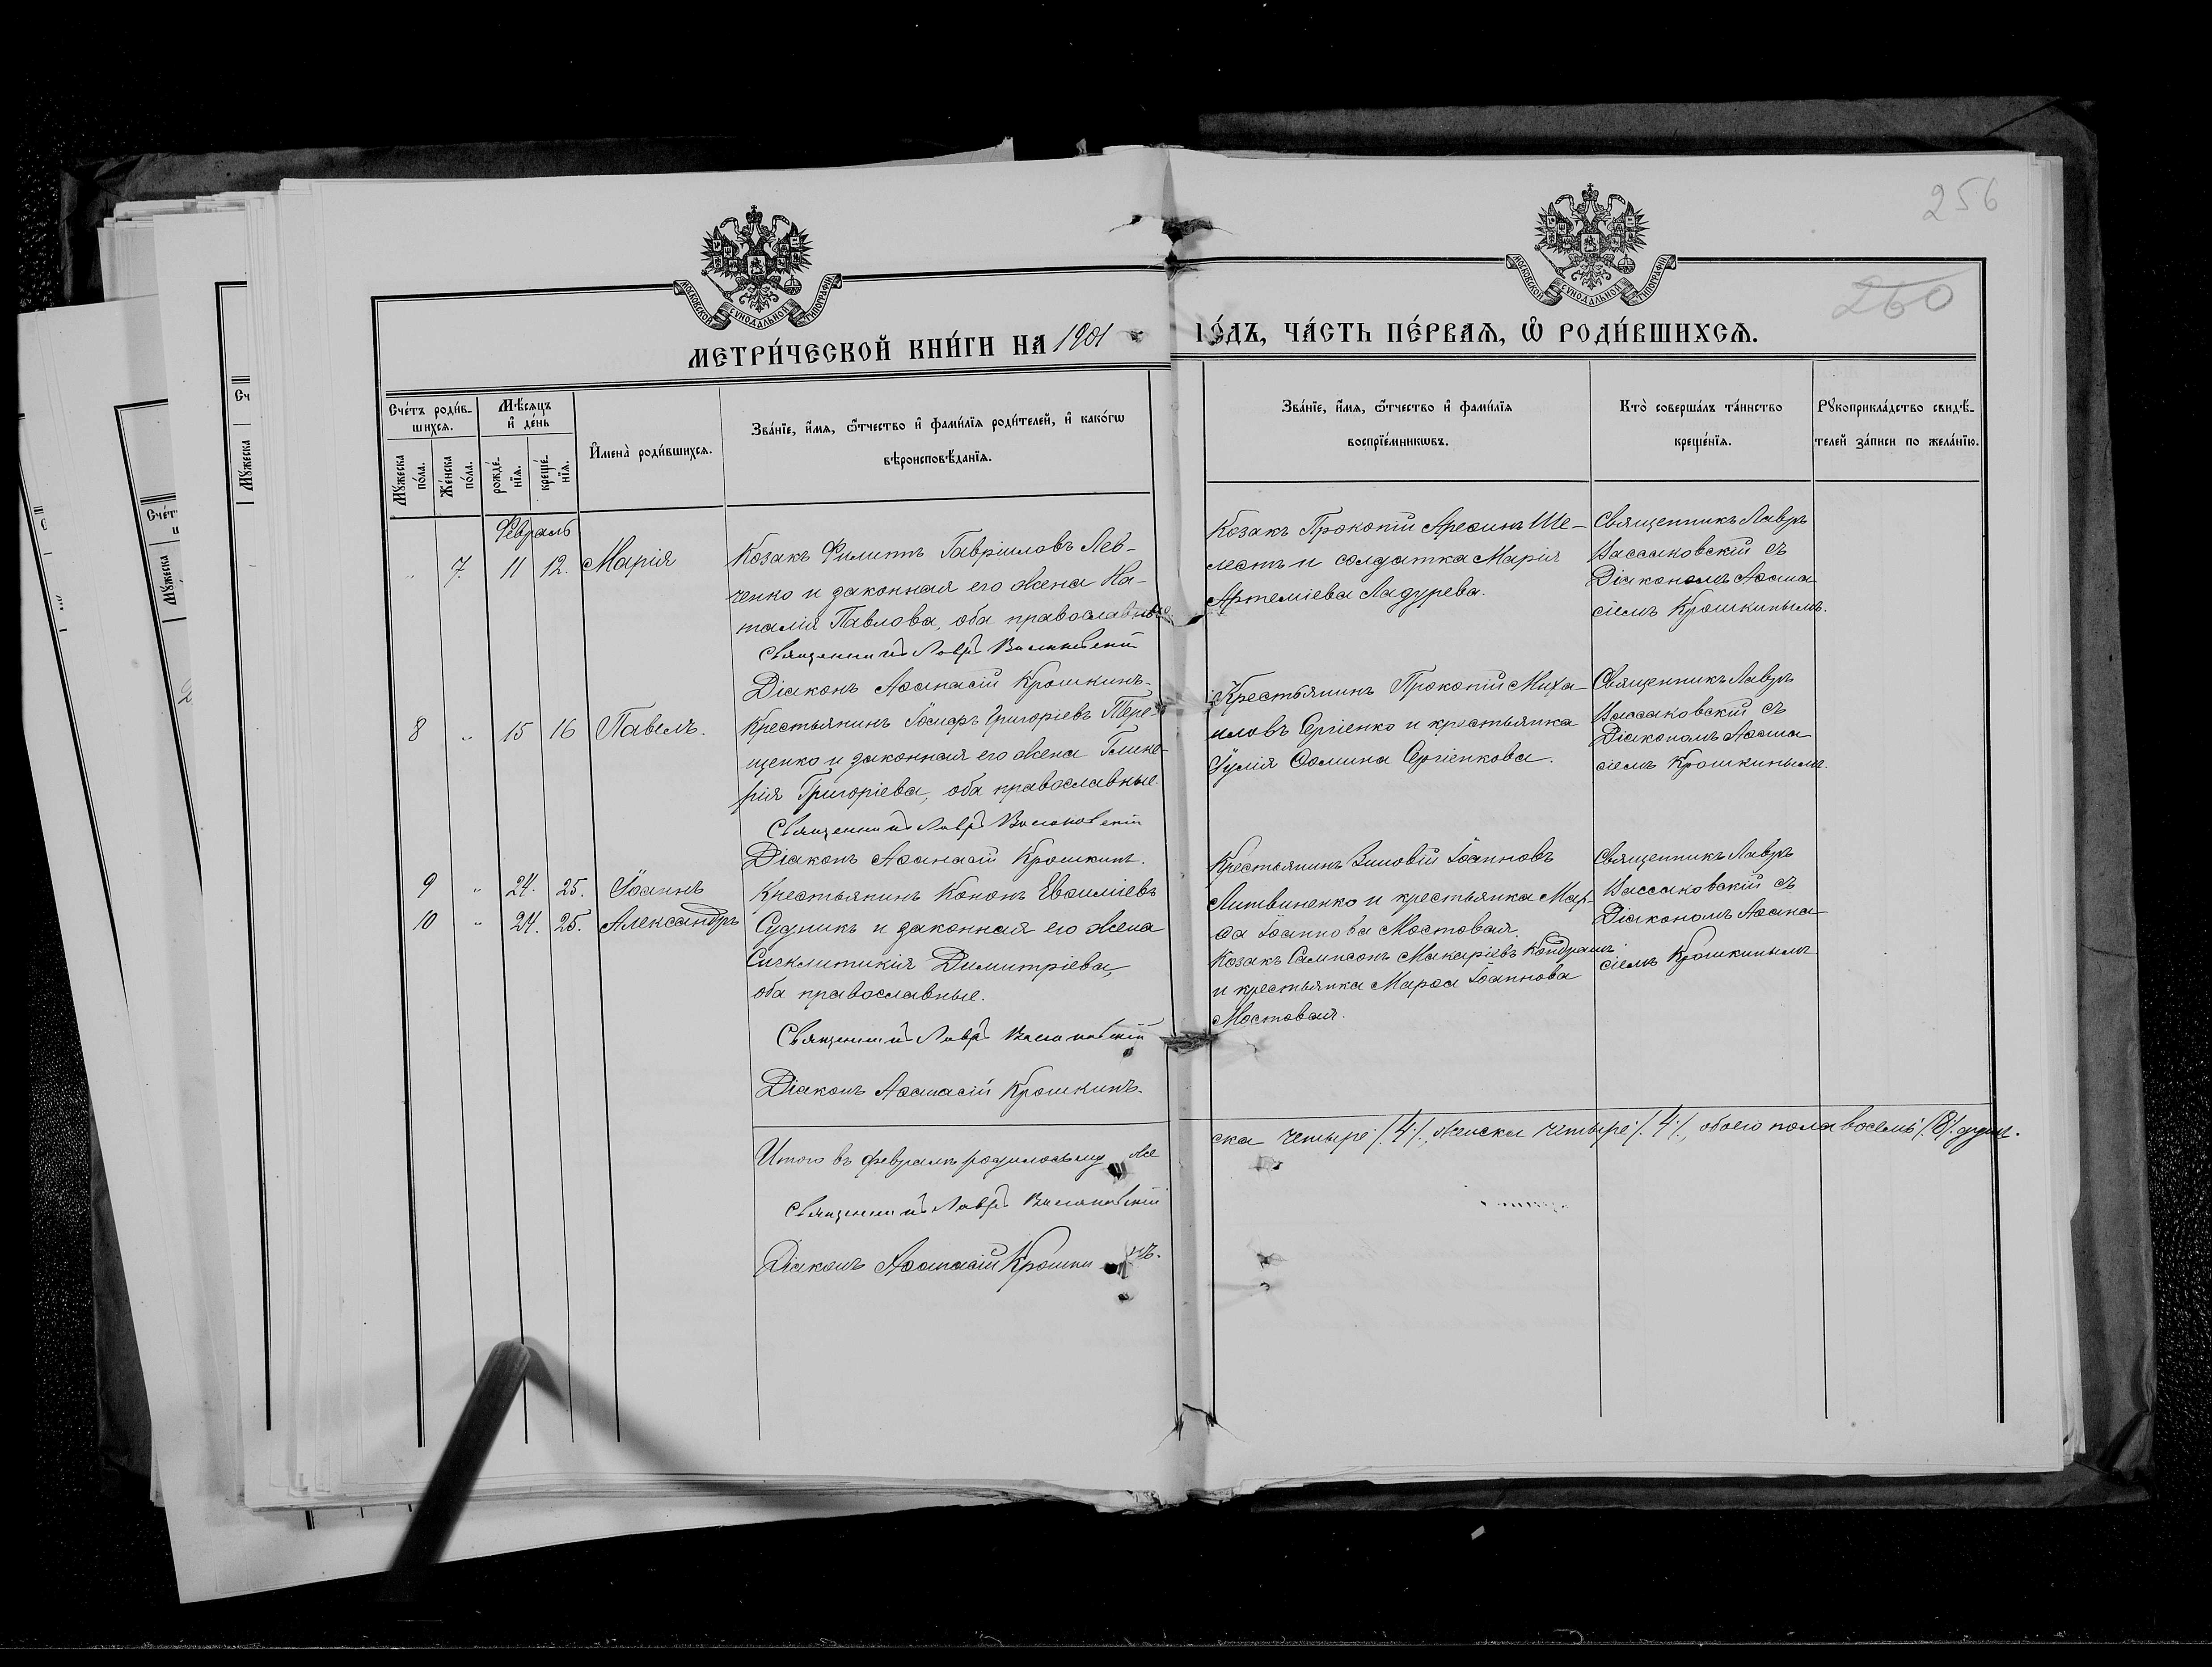 256
260
МОСКОВСКОЙ СѴНОДАЛЬНОЙ ТИПОГРАФІИ
МОСКОВСКОЙ СѴНОДАЛЬНОЙ ТИПОГРАФІИ
МЕТРИ́ЧЕСКОЙ КНИ́ГИ НА 1901 ГО́ДЪ, ЧА́СТЬ ПЕ́РВАѦ, Ѽ РОДИ́ВШИХСѦ.
Сче́тъ роди́в-
шихсѧ.
Мꙋ́жеска по́ла.
Же́нска по́ла.
Мѣ́сѧцъ
и҆ де́нь
рожде́-
нїѧ.
креще́-
нїѧ.
И҆мена̀ роди́вшихсѧ.
Зва́нїе, и҆́мѧ, ѻ҆́тчество и҆ фами́лїѧ роди́телей, и҆ како́гѡ
вѣроисповѣ́данїѧ.
Зва́нїе, и҆́мѧ, ѻ҆́тчество и҆ фами́лїѧ
воспрїе́мникѡвъ.
Кто̀ соверша́лъ та́инство
креще́нїѧ.
Рꙋкоприкла́дство свидѣ́-
телей за́писи по жела́нїю.
Февраль
" 7. 11 12. Марія
Козакъ Филиппъ Гавріиловъ Лев-
ченко и законная его жена На-
талія Павлова, оба православные
Священникъ Лавръ
Діаконъ Аѳанасій Крошкинъ.
Козакъ Прокопій Ше-
лестъ и солдатка Марія
Артеміева Ладурева.
Священникъ Лавръ
Вассаковскій съ
Діакономъ Аѳана
сіемъ Крошкинымъ.
8 " 15 16 Павелъ.
Крестьянинъ Григоріевъ Тере-
щенко и законная его жена Глике-
рія Григоріева, оба православные.
Священникъ Лавръ
Діаконъ Аѳанасій Крошкинъ.
Крестьянинъ Прокопій Миха-
иловъ Сергіенко и крестьянка
Іулія Ѳомина Сергіенкова.
Священникъ Лавръ
Вассаковскій съ
Діакономъ Аѳана
сіемъ Крошкинымъ.
9 " 24. 25. Іоаннъ
10 " 24. 25. Александръ
Крестьянинъ Кононъ Евѳиміевъ
Судникъ и законная его жена
Сигклитикія Димитріева,
оба православные.
Священникъ Лавръ
Діаконъ Аѳанасій Крошкинъ.
Крестьянинъ Зиновій Іоанновъ
Литвиненко и крестьянка Мар-
ѳа Іоаннова Мостовая.
Козакъ Сампсонъ Макаріевъ
и крестьянка Марѳа Іоаннова
Мостовая.
Священникъ Лавръ
Вассаковскій съ
Діакономъ Аѳана
сіемъ Крошкинымъ
Итого въ февралѣ родилось муже
ска четыре /4/, женска четыре /4/, обоего пола восемь /8/ душъ.
Священникъ Лавръ
Діаконъ Аѳанасій Крошкинъ.